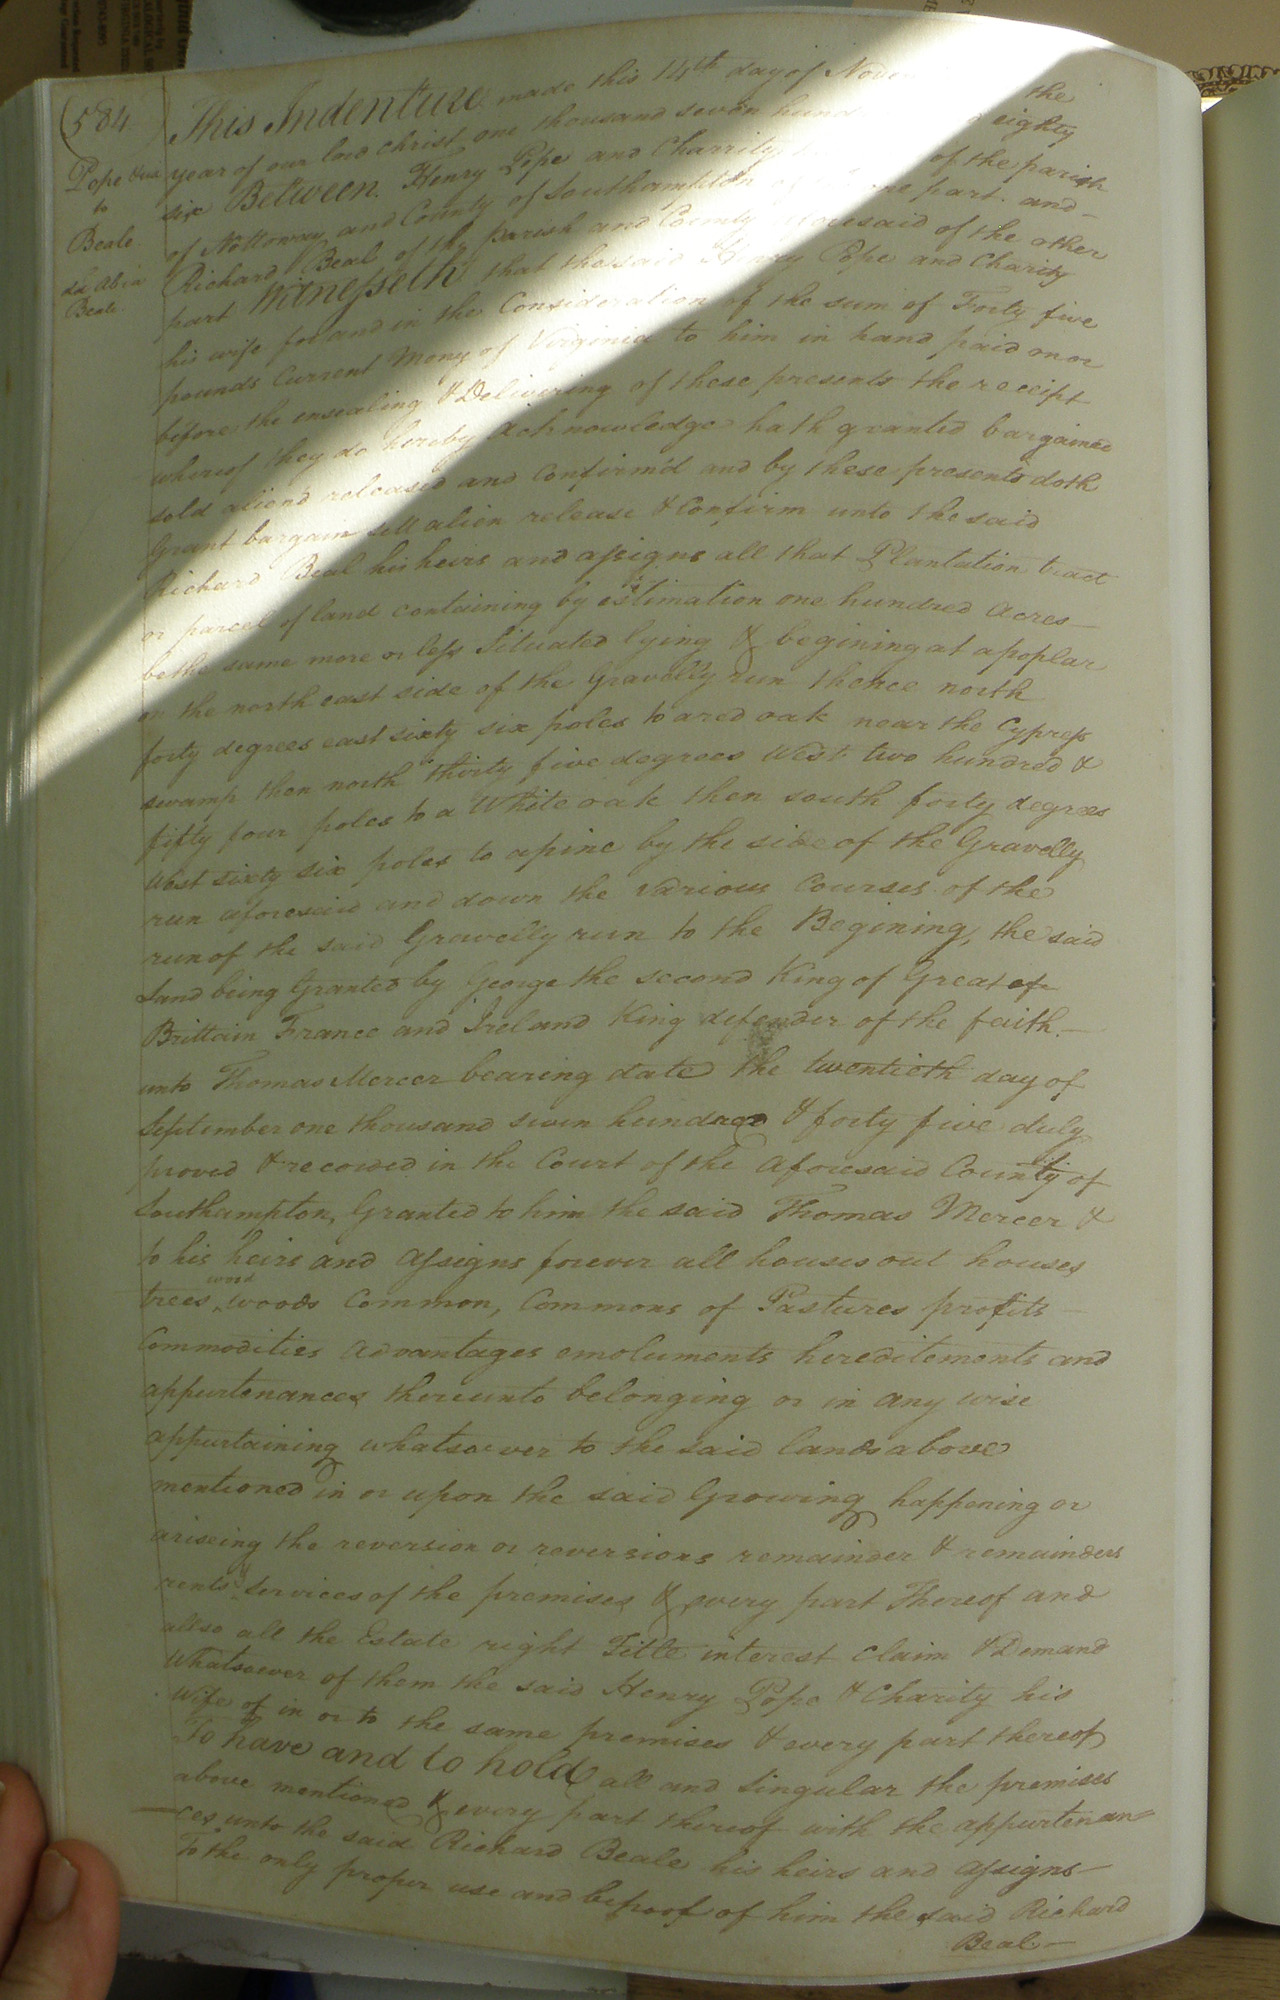 (584
Pope &ux
to
Beale
Beale
This Indenture made this 14th day of the
year of our lord christ one thousand seven eighty
six Between Henry Pope and Charity of the parish
of Nottoway and County of Southampton part and
Richard Beal of the parish and County aforesaid of the other
part Witnesseth that the said Henry Pope and Charity
his wife for and in the Consideration of the sum of Forty five
pounds Current Mony of Virginia to him in hand paid on or
before the ensealing & Delivering of these presents the receipt
whereof they do hereby Acknowledge hath granted bargained
sold aliend released and Confirmd and by these presents doth
Grant bargain sell alien release & Confirm unto the said
Richard Beal his heirs and assigns all that Plantation tract
or parcel of land containing by estimation one hundred Acres
be the same more or less Situated lying & begining at a poplar
on the north east side of the Gravelly run thence north
forty degrees east sixty six poles to a red oak near the Cypress
swamp then north thirty five degrees West two hundred &
fifty four poles to a White oak then south forty degrees
West sixty six poles to a pine by the side of the Gravelly
run aforesaid and down the various Courses of the
run of the said Gravelly run to the Begining, the said
Land being Granted by George the second King of Great of
Brittain France and Ireland King defender of the faith
unto Thomas Mercer bearing date the twentieth day of
September one thousand seven hundred & forty five duly
proved & recorded in the Court of the Aforesaid County of
Southampton, Granted to him the said Thomas Mercer &
to his heirs and Assigns forever all houses out houses
wood
trees woods Common, Commons of Pastures profits
Commodities Advantages emoluments hereditements and
appurtenances thereunto belonging or in any wise
appurtaining whatsoever to the said lands above
mentioned in or upon the said Growing happening or
ariseing the reversion or reversions remainder & remainders
rents & Services of the premises & every part Thereof and
allso all the Estate right Title interest Claim & Demand
Whatsoever of them the said Henry Pope & Charity his
Wife of in or to the same premises & every part thereof
To have and to hold all and Singular the premises
above mentioned & every part thereof with the appurtenan=
ces unto the said Richard Beale his heirs and assigns
To the only proper use and behoof of him the said Richard
Beal